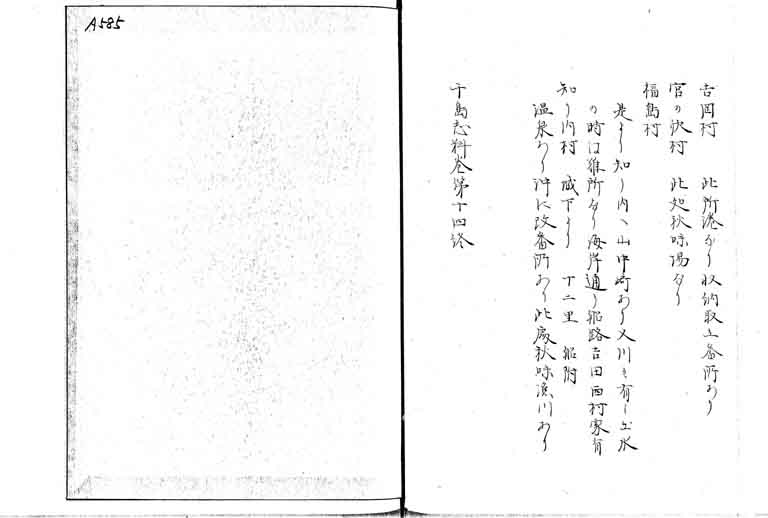 吉岡村　此所港なり収納取立番所あり
宮の沢村　此処秋味場なり
福島村
是より知り内へ山中峠あり又川も有り出水
の時は難所なり海岸通り船路吉田西村家有
知り内村　城下より　十二里　船附
温泉あり沖に改番所あり此處秋味漁川あり
千島志料巻第十四終
A585